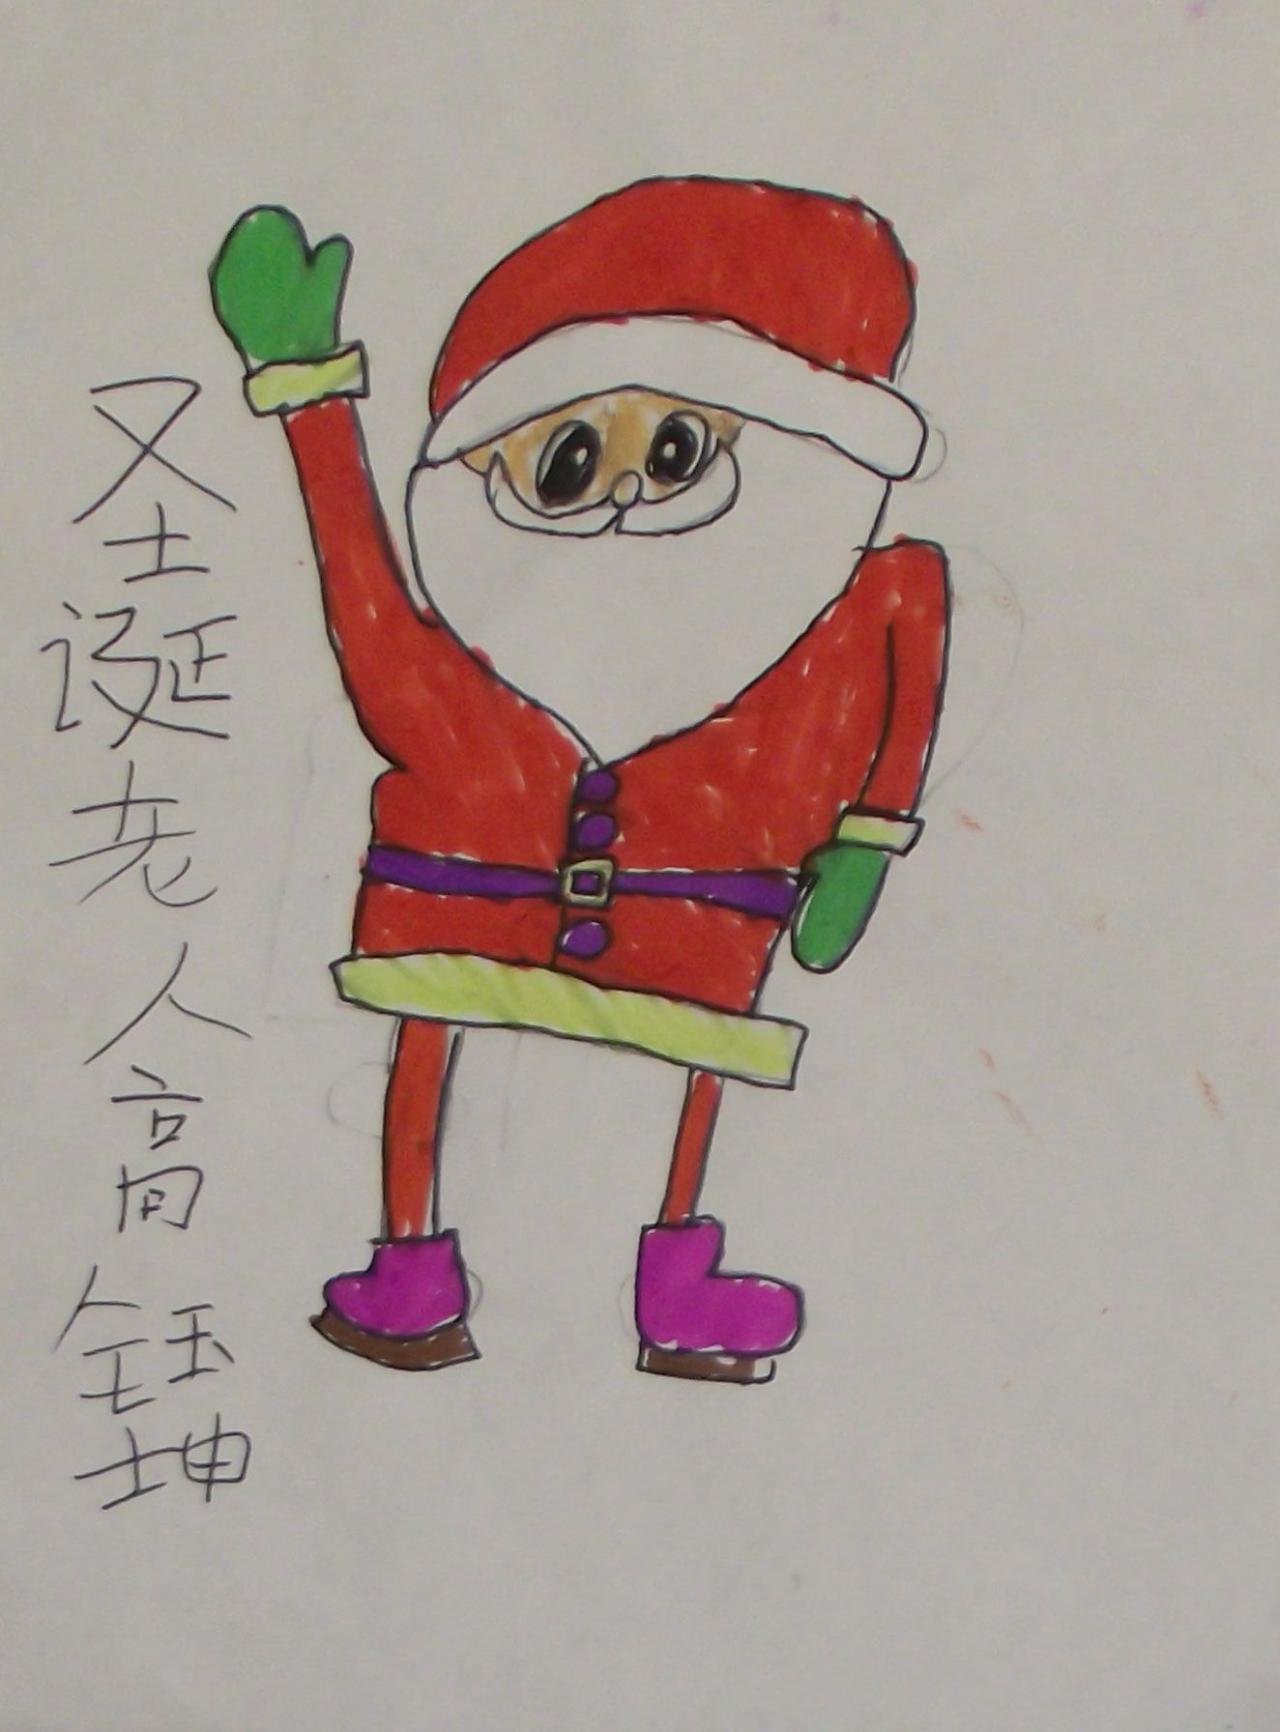 圣诞老人高钰坤